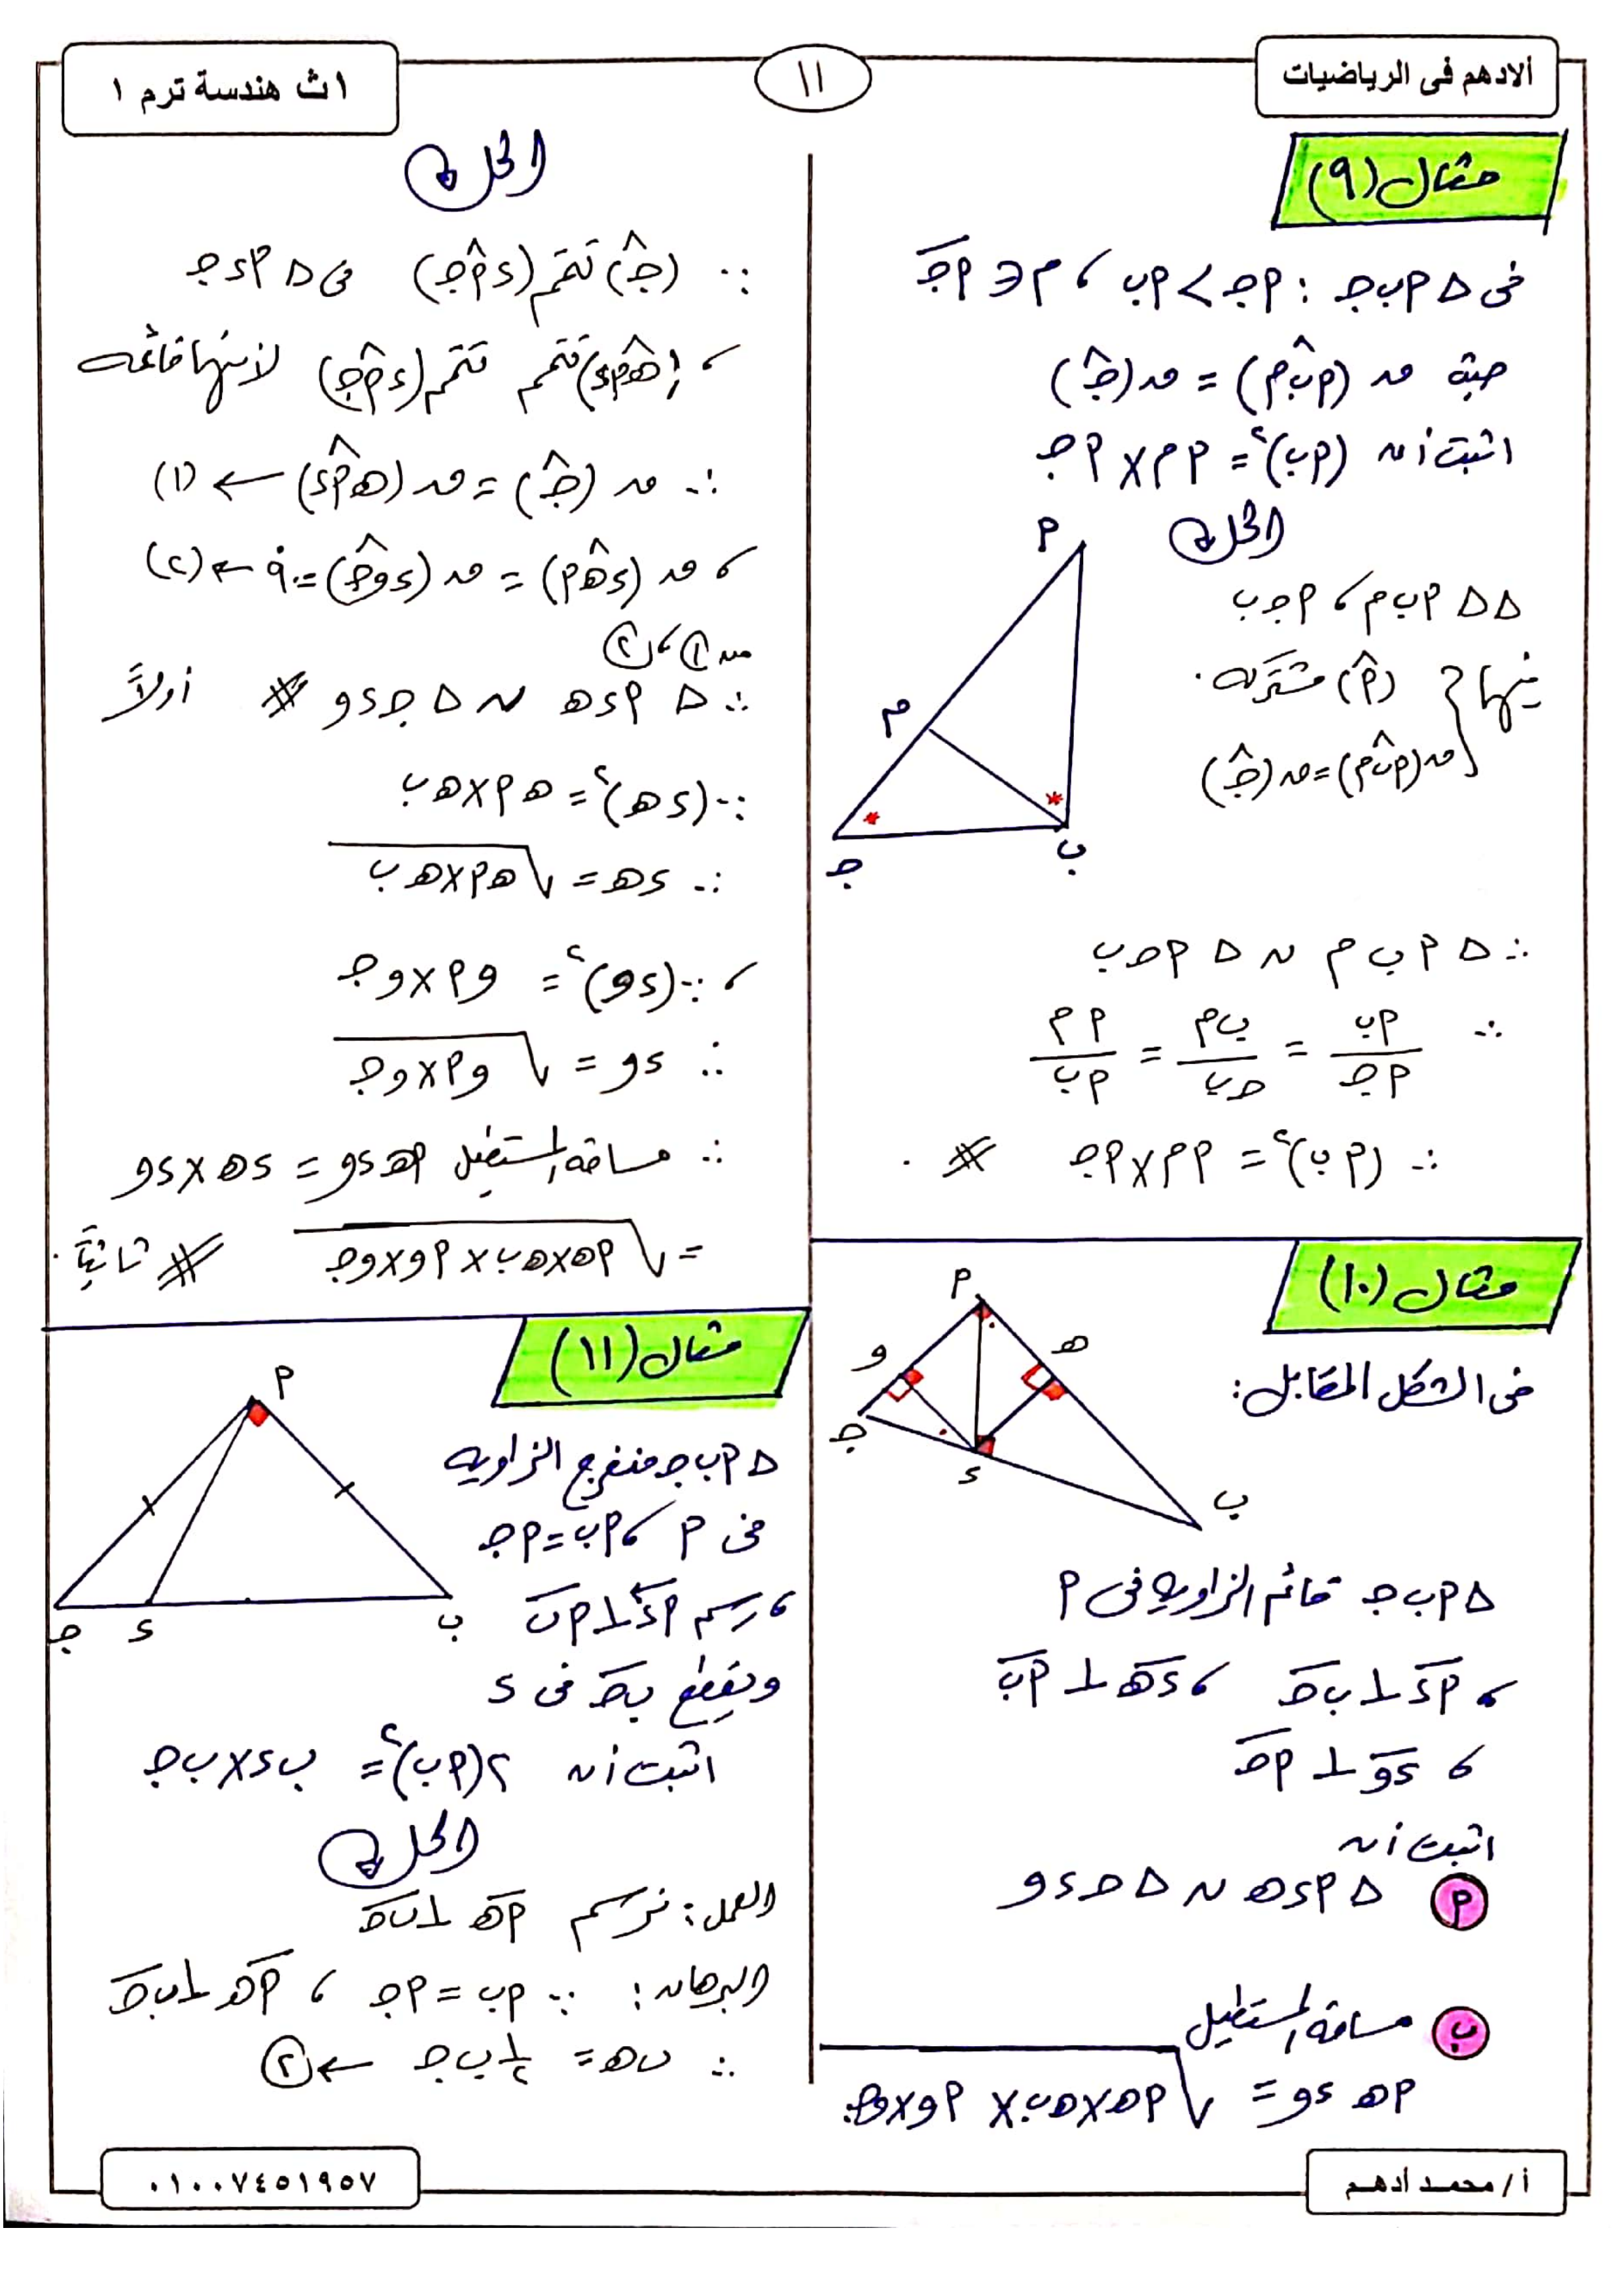 ألادهم فى الرياضيات
١١
١ث هندسة ترم ١
مثال (٩)
فى Δ أ ب جـ : أجـ > أب ، م ∈ أجـ
حيث ق (أب̂م) = ق (جـ̂)
اثبت أن (أب)² = أم × أجـ
الحل
أ
م
جـ
ب
ΔΔ أ ب م ، أ جـ ب
فيهما { (أ̂) مشتركه .
ق (أب̂م) = ق (جـ̂)
∴ Δ أ ب م ~ Δ أ جـ ب
∴ أب/أجـ = ب م/جـ ب = أ م/أ ب
∴ (أ ب)² = أ م × أ جـ #
مثال (١٠)
فى الشكل المقابل:
أ
هـ
و
جـ
د
ب
Δ أ ب جـ قائم الزاويه فى أ
، أد ⊥ ب جـ ، د هـ ⊥ أ ب
، د و ⊥ أ جـ
اثبت أن
أ Δ أ د هـ ~ Δ جـ د و
ب مساحة المستطيل
أ هـ د و = √(أ هـ × هـ ب × أ و × و جـ)
الحل
∵ (جـ̂) تتمم (د أ̂ جـ) فى Δ أ د جـ
، (هـ أ̂ د) تتمم تتمم (د أ̂ جـ) لأنها قائمه
∴ ق (جـ̂) = ق (هـ أ̂ د) ← (١)
، ق (د هـ̂ أ) = ق (د و̂ جـ) = ٩٠° ← (٢)
من ① ، ②
∴ Δ أ د هـ ~ Δ جـ د و # أولاً
∵ (د هـ)² = هـ أ × هـ ب
∴ د هـ = √(هـ أ × هـ ب)
، ∵ (د و)² = و أ × و جـ
∴ د و = √(و أ × و جـ)
∴ مساحة المستطيل أ هـ د و = د هـ × د و
= √(أ هـ × هـ ب × أ و × و جـ) # ثانياً .
مثال (١١)
أ
جـ
د
ب
Δ أ ب جـ منفرج الزاويه
فى أ ، أ ب = أ جـ
، رسم أ د ⊥ أ ب
ويقطع ب جـ فى د
اثبت أن ٢(أ ب)² = ب د × ب جـ
الحل
العمل : نرسم أ هـ ⊥ ب جـ
البرهان : ∵ أ ب = أ جـ ، أ هـ ⊥ ب جـ
∴ ب هـ = ١/٢ ب جـ ← ②
أ / محمد أدهم
٠١٠٠٧٤٥١٩٥٧